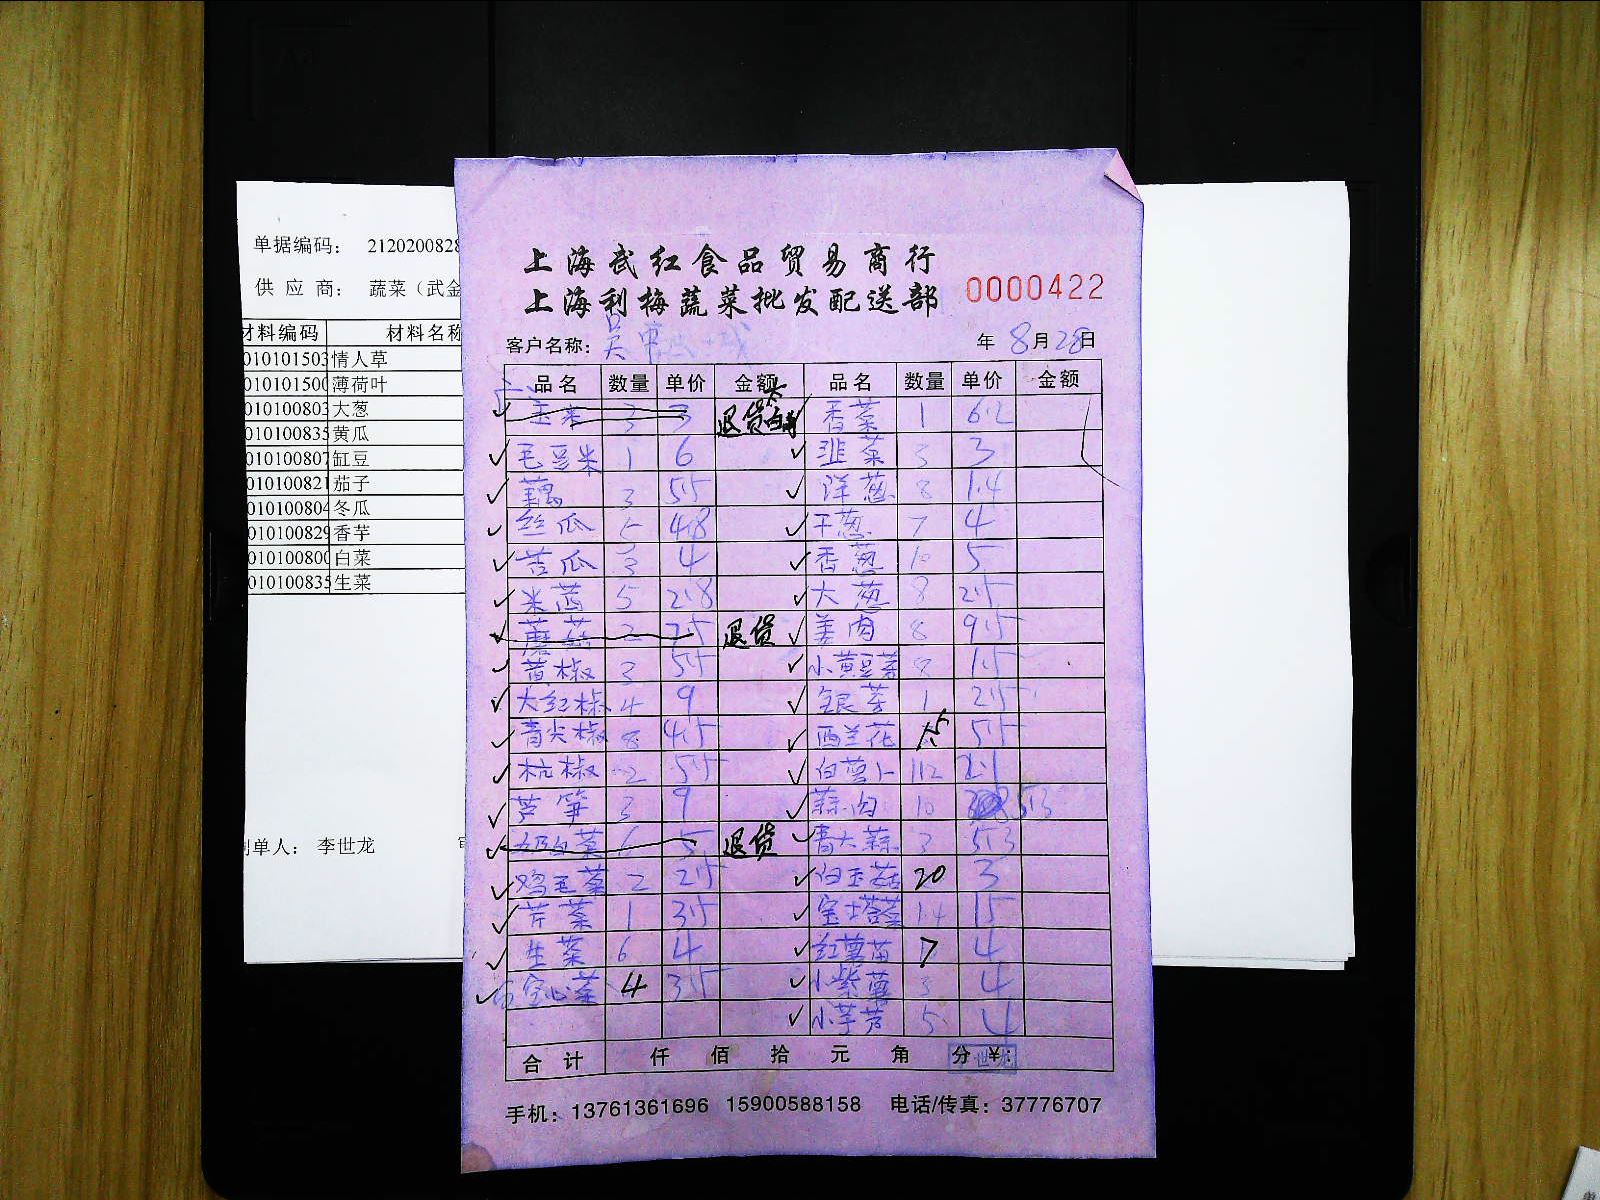 单据编码： 2120200828
供应商： 蔬菜（武金
材料编码 材料名称
010101503 情人草
010101500 薄荷叶
010100803 大葱
010100835 黄瓜
010100807 缸豆
010100821 茄子
010100804 冬瓜
010100829 香芋
010100800 白菜
010100835 生菜
制单人： 李世龙
上海武红食品贸易商行
上海利梅蔬菜批发配送部
0000422
客户名称： 年 8月28日
品名 数量 单价 金额 品名 数量 单价 金额
玉米 3 3 退货 香菜 1 6.2
毛豆米 1 6 韭菜 3 3
藕 3 5.5 洋葱 8 1.4
丝瓜 5 4.8 干葱 7 4
苦瓜 3 4 香葱 10 5
米茄 5 2.8 大葱 8 2.5
蘑菇 2 7.5 退货 姜肉 8 9.5
黄椒 3 5.5 小黄豆芽 8 1.5
大红椒 4 9 银芽 1 2.5
青尖椒 8 4.5 西兰花 5.5
杭椒 2 5.5 白萝卜 112 2.1
芦笋 3 9 蒜肉 10 5.3
奶白菜 6 5 退货 青大蒜 3 5.3
鸡毛菜 2 2.5 白玉菇 20 3
芹菜 1 3.5 宝塔菜 14 15
生菜 6 4 红薯苗 7 4
空心菜 4 3.5 小紫薯 3 4
小芋芦 5 4
合计 仟 佰 拾 元 角 分 ￥：
手机：13761361696 15900588158 电话/传真：37776707